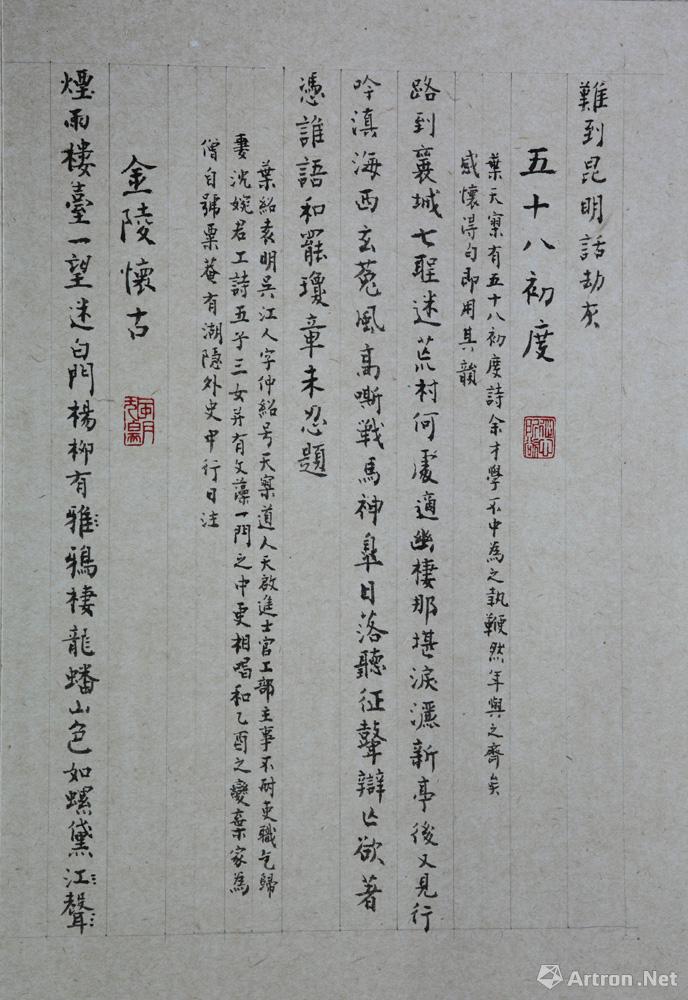 難到昆明話劫灰
五十八初度
葉天寥有五十八初度詩余才學不中為之執鞭然年與之齊矣
感懷得句即用其韻
路到襄城七聖迷荒村何處適幽棲那堪淚灑新亭後又見行
吟滇海西玄菟風高嘶戰馬神皋日落聽征鼙辯亡欲著
憑誰語和罷瓊章未忍題
葉紹袁明吳江人字仲紹号天寥道人天啟進士官工部主事不耐吏職乞歸
妻沈婉君工詩五子三女并有文藻一門之中更相唱和乙酉之變棄家為
僧自號粟菴有湖隱外史甲行日注
金陵懷古
煙雨樓臺一望迷白門楊柳有雅鴉棲龍蟠山色如螺黛江聲
Artron.Net